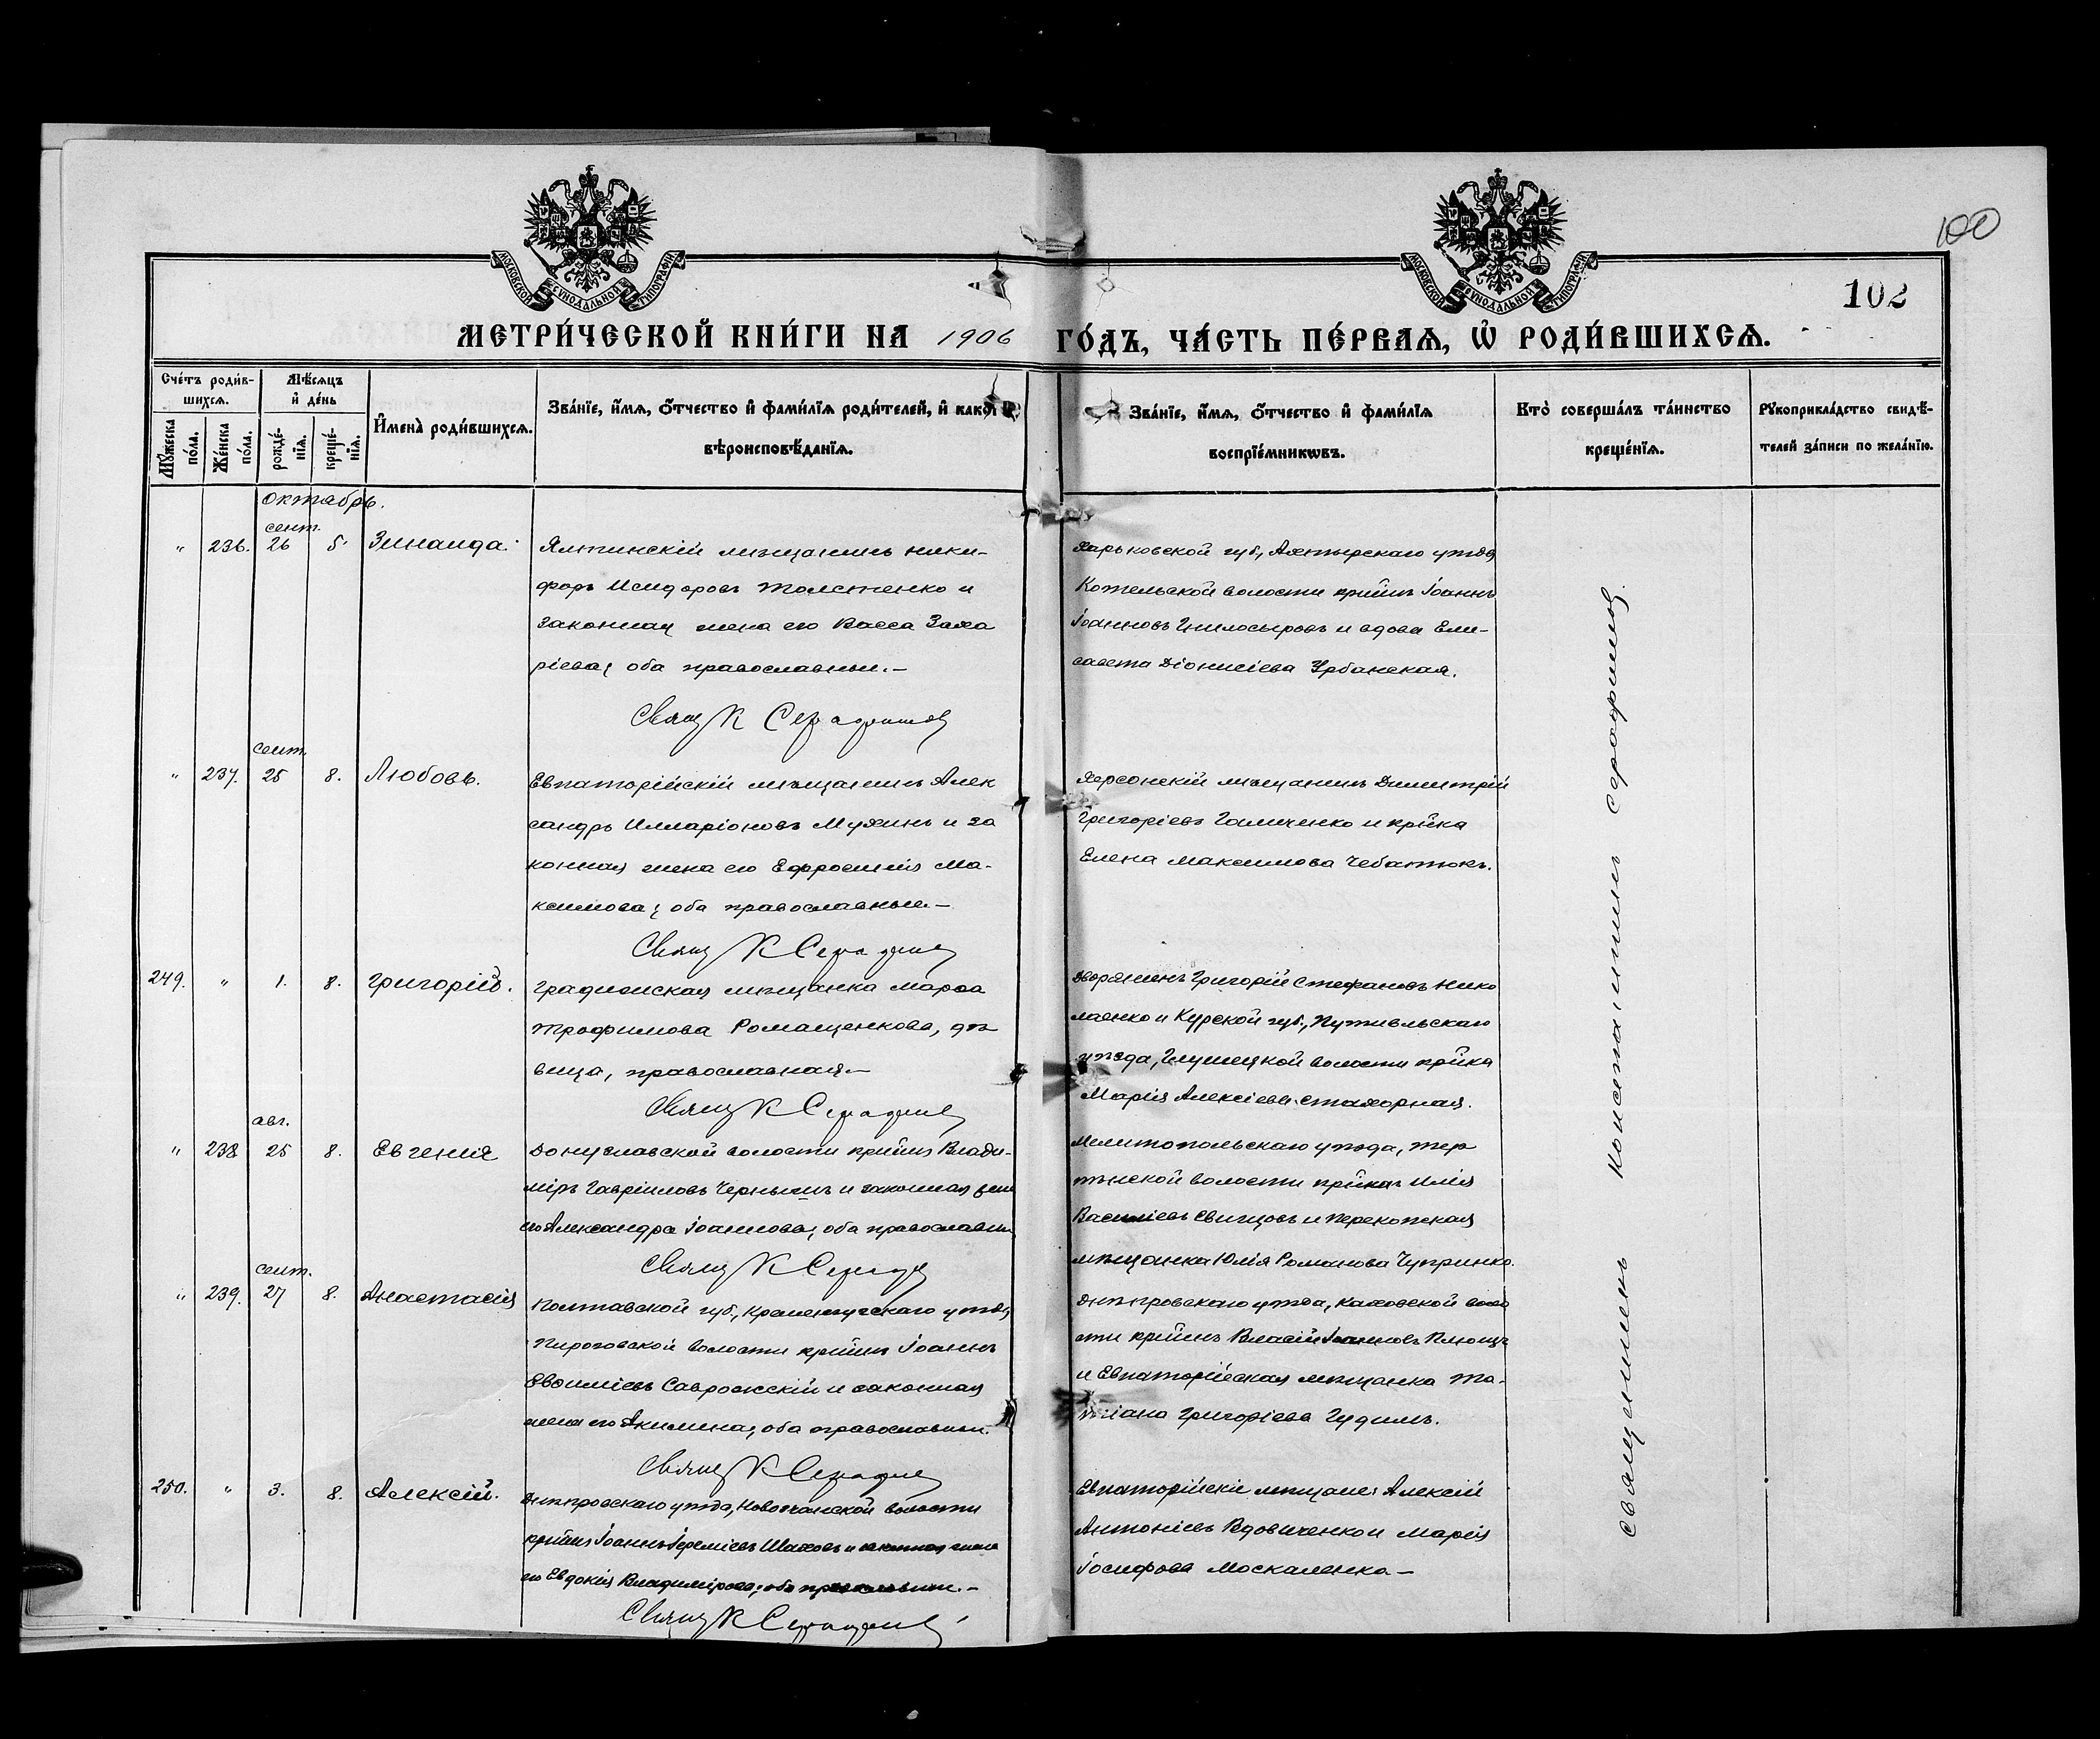 100
102
МОСКОВСКОЙ СѴНОДАЛЬНОЙ ТИПОГРАФІИ
МОСКОВСКОЙ СѴНОДАЛЬНОЙ ТИПОГРАФІИ
МЕТРИ́ЧЕСКОЙ КНИ́ГИ НА 1906 ГО́ДЪ, ЧА́СТЬ ПЕ́РВАѦ, Ѡ҆ РОДИ́ВШИХСѦ.
Сче́тъ роди́в-
шихсѧ.
Мѣ́сѧцъ
и҆ де́нь
Мꙋ́жеска по́ла.
Же́нска по́ла.
рожде́-
нїѧ.
креще́-
нїѧ.
И҆мена̀ роди́вшихсѧ.
Зва́нїе, и҆́мѧ, ѻ҆́тчество и҆ фами́лїѧ роди́телей, и҆ како́
вѣроисповѣ́данїѧ.
Зва́нїе, и҆́мѧ, ѻ҆́тчество и҆ фами́лїѧ
воспрїе́мникѡвъ.
Кто̀ соверша́лъ та́инство
креще́нїѧ.
Рꙋкоприкла́дство свидѣ́-
телей за́писи по жела́нїю.
Октябрь.
сент.
" 236. 26 5. Зинаида.
Ялтинскій мѣщанинъ Ники-
форъ Исидоровъ Толстенко и
законная жена его Васса Заха
ріева; оба православные.—
Свящ К Серафимов
Харьковской губ., Ахтырскаго уѣзда
Котельской волости крнинъ Іоаннъ
Іоанновъ Гнилосыровъ и вдова Ели-
савета Діонисіева Урбанская.
сент.
" 237. 25 8. Любовь.
Евпаторійскій мѣщанинъ Алек
сандръ Илларіоновъ Мухинъ и за
конная жена его Ефросинія Ма-
ксимова; оба православные.—
Свящ К Серафим
Херсонскій мѣщанинъ Димитрій
Григоріевъ Галиченко и крнка
Елена Максимова Чебатюкъ.
249. " 1. 8. Григорій.
Градижская мѣщанка Марѳа
Трофимова Ромащенкова, дѣ
вица, православная—
Свящ К Серафим
Дворянинъ Григорій Стефановъ Нико
лаенко и Курской губ., Путивльскаго
уѣзда, Глушецкой волости крнка
Марія Алексіева Стахорная.
авг.
" 238 25 8. Евгенія
Донузлавской волости крнинъ Влади-
міръ Гавріиловъ Чернышъ и законная жена
его Александра Іоаннова; оба православны
Свящ К Серафи
Мелитопольскаго уѣзда, Тер
пѣнской волости крнинъ Илія
Василіевъ Свинцовъ и Перекопская
мѣщанка Юлія Романова Чупринко.
сент.
" 239. 27 8. Анастасія
Полтавской губ., Кременчугскаго уѣзда
Пироговской волости крнинъ Іоаннъ
Евѳиміевъ Саврожскій и законная
жена его Акилина; оба православны.
Свящ К Серафим
Днѣпровскаго уѣзда, Каховской воло
сти крнинъ Власій Іоанновъ Клющъ
и Евпаторійская мѣщанка Та-
тіана Григоріева Гудимъ.
250. " 3. 8. Алексій.
Днѣпровскаго уѣзда, Новочанской волости
крнинъ Іоаннъ Іереміевъ Шаховъ и законная жена
его Евдокія Владимірова; оба православны.—
Свящ К Серафимов
Евпаторійскіе мѣщане: Алексій
Антоніевъ Вдовиченко и Марія
Іосифова Москаленко—
Священникъ Константинъ Серафимовъ.